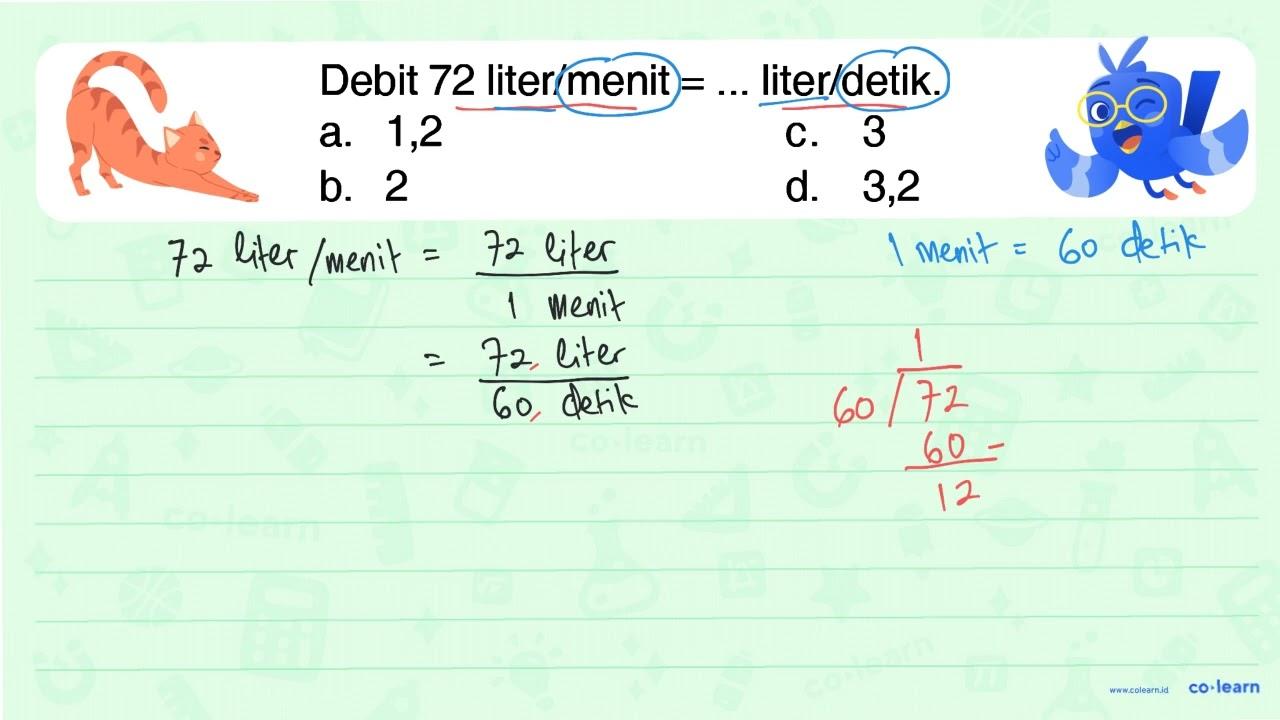 Debit 72 liter/menit = ... liter/detik.
a. 1,2 c. 3
b. 2 d. 3,2
72 liter/menit = 72 liter
1 menit
1 menit = 60 detik
= 72 liter
60 detik
1
60 / 72
60 -
12
co·learn
co·learn
co·learn
www.colearn.id co·learn